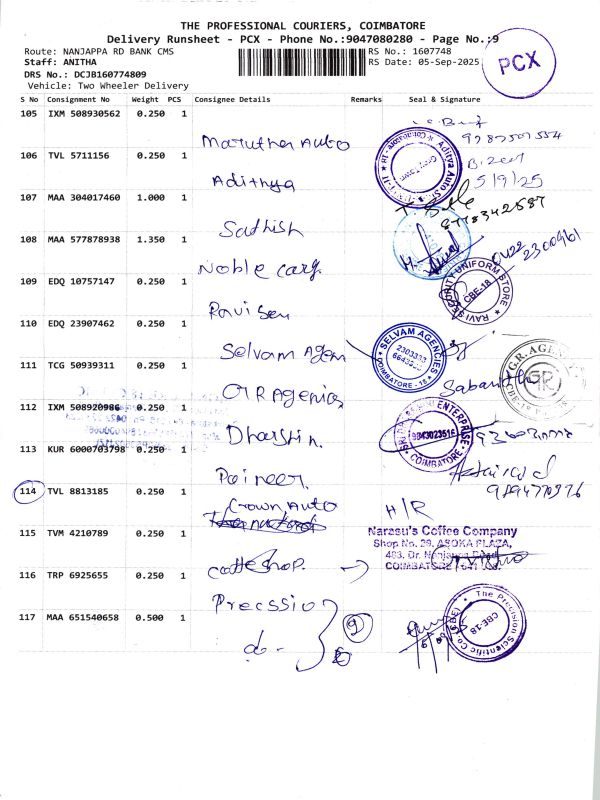 THE PROFESSIONAL COURIERS, COIMBATORE
Delivery Runsheet - PCX - Phone No.:9047080280 - Page No.:9
Route: NANJAPPA RD BANK CMS
RS No.: 1607748
Staff: ANITHA
RS Date: 05-Sep-2025
DRS No.: DCJB160774809
Vehicle: Two Wheeler Delivery
PCX
S No Consignment No Weight PCS Consignee Details Remarks Seal & Signature
105 IXM 508930562 0.250 1
Marutha Auto
106 TVL 5711156 0.250 1
Adithya
5/9/25
107 MAA 304017460 1.000 1
Sathish
108 MAA 577878938 1.350 1
Noble carg.
109 EDQ 10757147 0.250 1
Ravi Sen
RAVI SECURITY UNIFORM STORE
CBE-18
110 EDQ 23907462 0.250 1
Selvam Agen
SELVAM AGENCIES
COIMBATORE - 18
111 TCG 50939311 0.250 1
GR Agencies
G.R. AGENCIES
GR
112 IXM 508920986 0.250 1
Dharshin.
ENTERPRISE
9843023516
COIMBATORE
113 KUR 6000703798 0.250 1
Paineer.
114 TVL 8813185 0.250 1
Crown Auto
H/R
115 TVM 4210789 0.250 1
Narasu's Coffee Company
Shop No. 29, ASOKA PLAZA,
483, Dr. Nanjappa Road,
COIMBATORE
116 TRP 6925655 0.250 1
coffeeshop.
117 MAA 651540658 0.500 1
Precssion
do -
2
The Precision Scientific Co. (CBE)
CBE-18